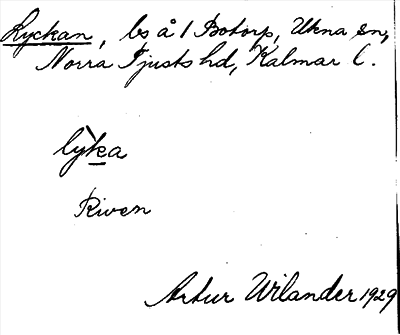 Lyckan, bs å 1 Botorp, Ukna sn,
Norra Tjusts hd, Kalmar l.
lỳka
Riven
Artur Wilander 1929